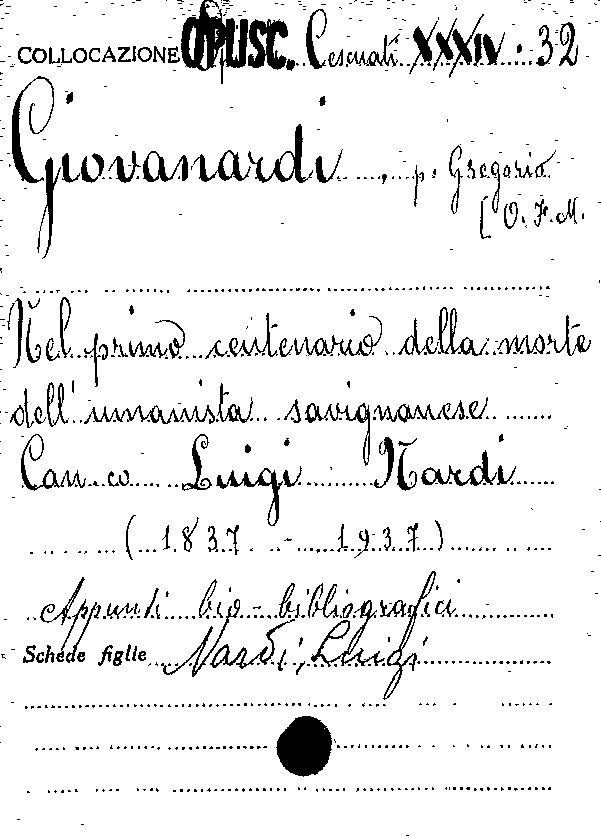 COLLOCAZIONE OPUSC. Cesenati XXXIV. 32
Giovanardi, p. Gregorio
[O.F.M.
Nel primo centenario della morte
dell'umanista savignanese
Can.co Luigi Nardi
(1837 - 1937)
Appunti bio-bibliografici
Schede figlie Nardi, Luigi